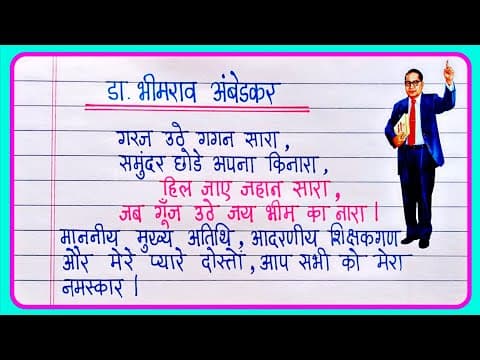 डा. भीमराव अंबेडकर
गरज उठे गगन सारा,
समुंदर छोडे अपना किनारा,
हिल जाए जहान सारा,
जब गूँज उठे जय भीम का नारा।
माननीय मुख्य अतिथि, आदरणीय शिक्षकगण
और मेरे प्यारे दोस्तों, आप सभी को मेरा
नमस्कार।